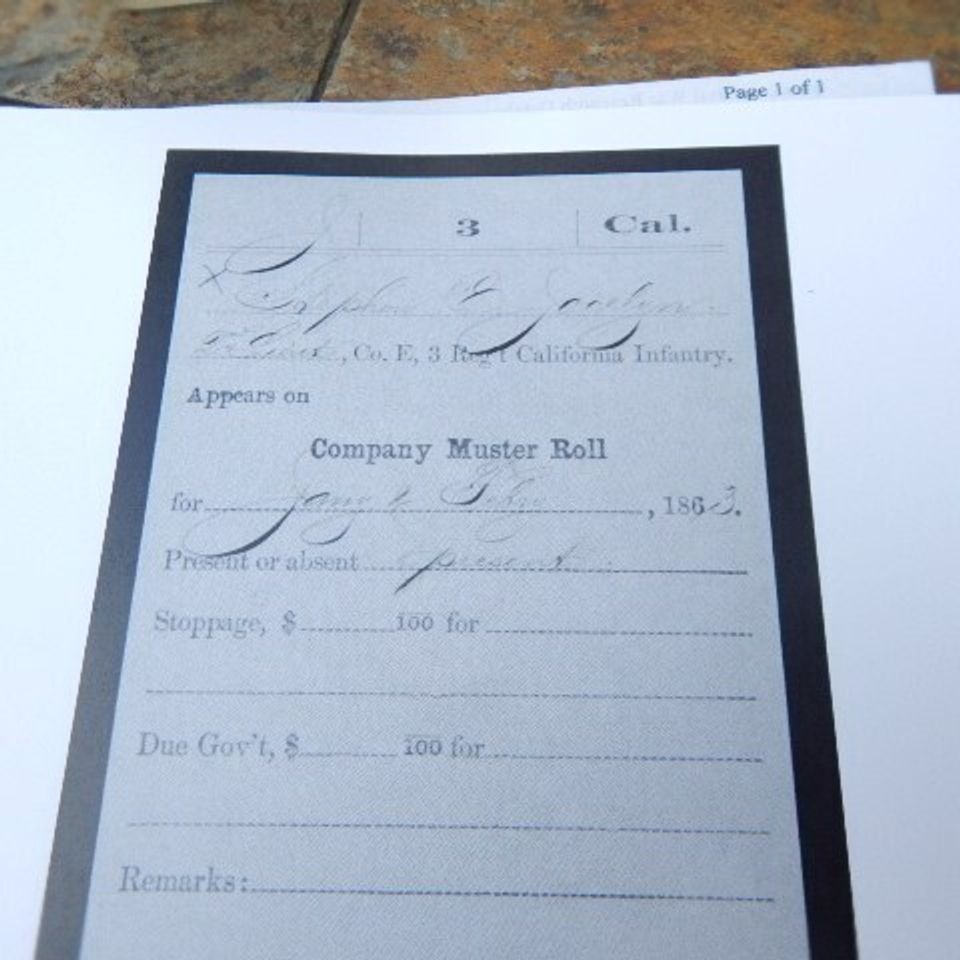 Page 1 of 1
J 3 Cal.
X Stephen Jocelyn
Lieut, Co. E, 3 Reg't California Infantry.
Appears on
Company Muster Roll
for Jany & Feby, 1863.
Present or absent present
Stoppage, $ 100 for
Due Gov't, $ 100 for
Remarks: